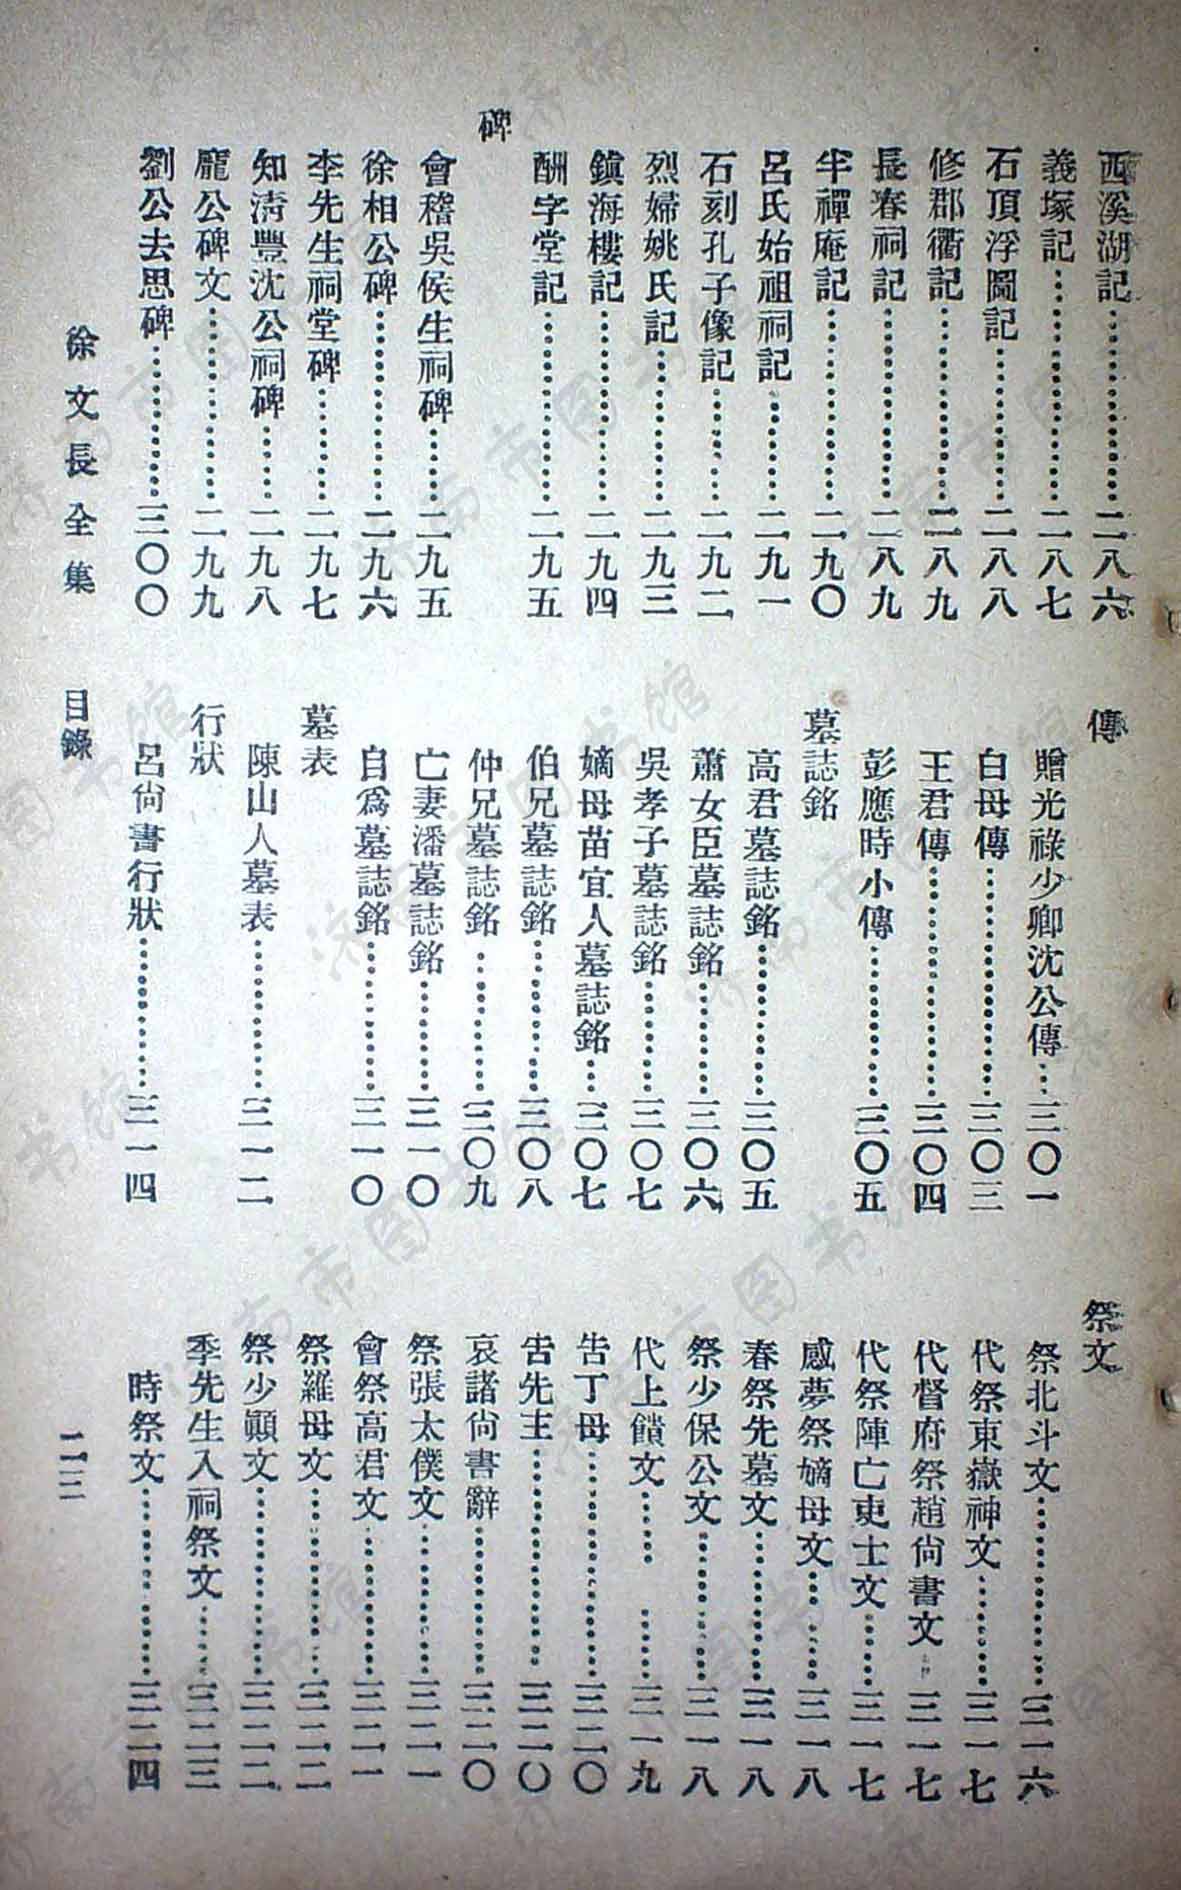 西溪湖記…………二八六
義塚記…………二八七
石頂浮圖記…………二八八
修郡衢記…………二八九
長春祠記…………二八九
半禪庵記…………二九〇
呂氏始祖祠記…………二九一
石刻孔子像記…………二九二
烈婦姚氏記…………二九三
鎮海樓記…………二九四
酬字堂記…………二九五
碑
會稽吳侯生祠碑…………二九五
徐相公碑…………二九六
李先生祠堂碑…………二九七
知清豐沈公祠碑…………二九八
龐公碑文…………二九九
劉公去思碑…………三〇〇
傳
贈光祿少卿沈公傳…三〇一
白母傳…………三〇三
王君傳…………三〇四
彭應時小傳…………三〇五
墓誌銘
高君墓誌銘…………三〇五
蕭女臣墓誌銘…………三〇六
吳孝子墓誌銘…………三〇七
嫡母苗宜人墓誌銘…三〇七
伯兄墓誌銘…………三〇八
仲兄墓誌銘…………三〇九
亡妻潘墓誌銘…………三一〇
自爲墓誌銘…………三一〇
墓表
陳山人墓表…………三一二
行狀
呂尚書行狀…………三一四
祭文
祭北斗文…………三一六
代祭東嶽神文…………三一七
代督府祭趙尚書文…三一七
代祭陣亡吏士文…………三一七
感夢祭嫡母文…………三一八
春祭先墓文…………三一八
祭少保公文…………三一八
代上饋文…………三一九
告丁母…………三二〇
告先主…………三二〇
哀諸尚書辭…………三二〇
祭張太僕文…………三二一
會祭高君文…………三二一
祭羅母文…………三二二
祭少顚文…………三二二
季先生入祠祭文…………三二三
時祭文…………三二四
徐文長全集 目錄 二三
济南市图书馆